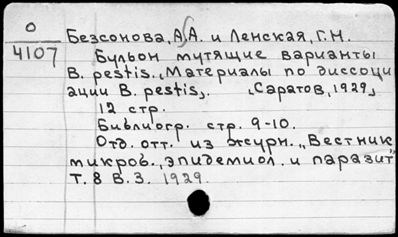 О
4107
Безсонова, А.А. и Ленская, Г.Н.
Бульон мутящие варианты
B. pestis. „Материалы по диссоци
ации B. pestis„. „Саратов, 1929„
12 стр.
Библиогр. стр. 9-10.
Отд. отт. из журн. „Вестник
микроб., эпидемиол. и паразит"
Т. 8 В. 3. 1929.